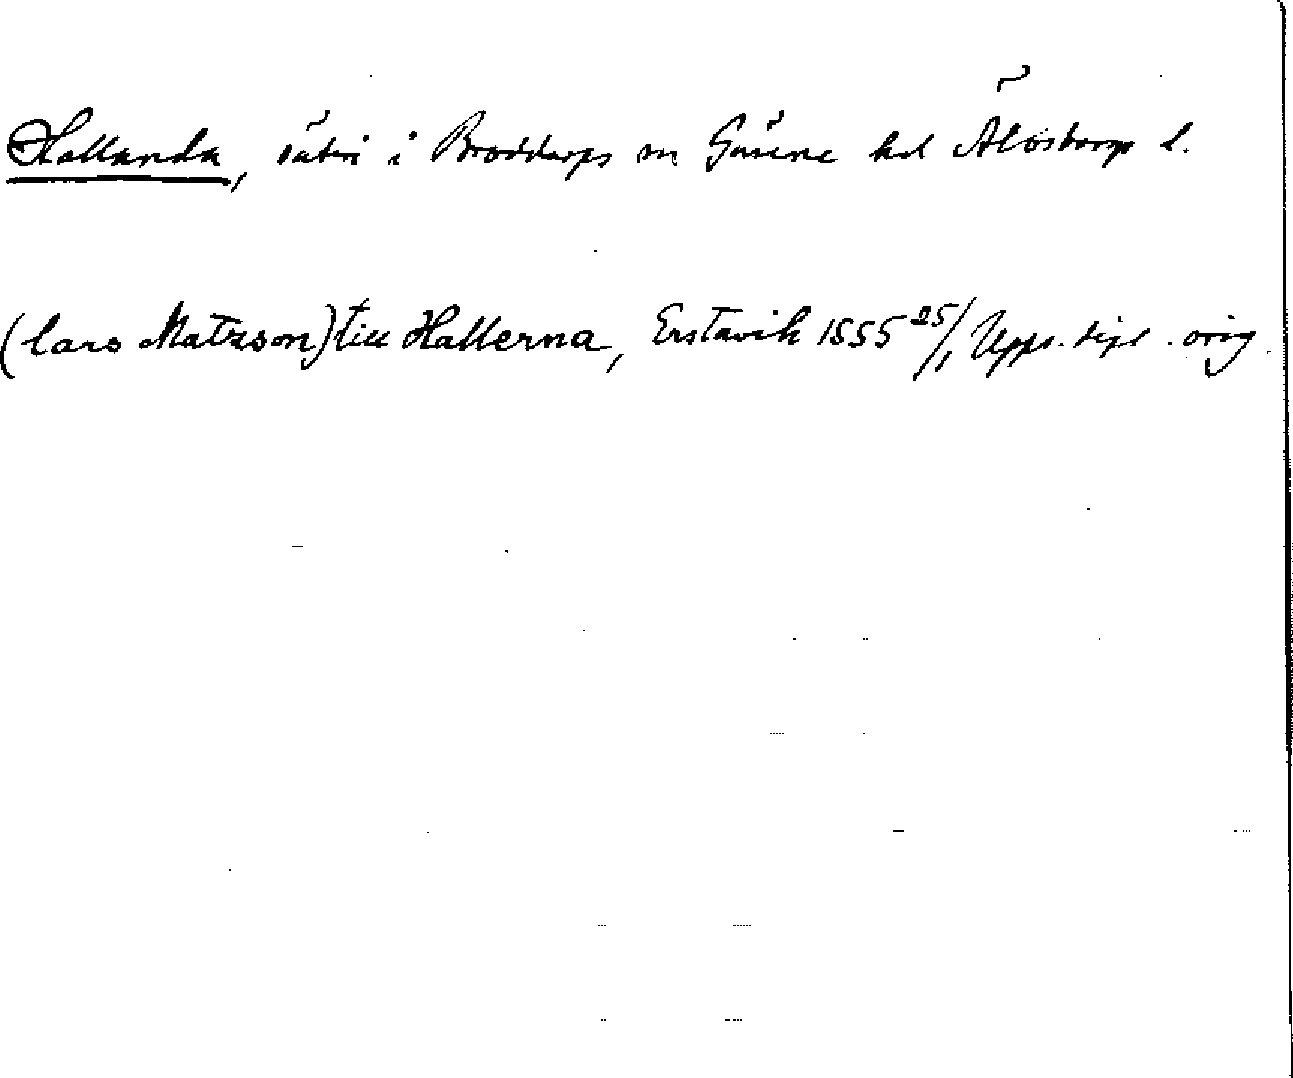 Hallanda, säteri i Broddarps sn Gäsene hd Älvsborgs l.
(Lars Matzson) till Hallerna, Erstavik 1555 25/1, Upps. dipl. orig.